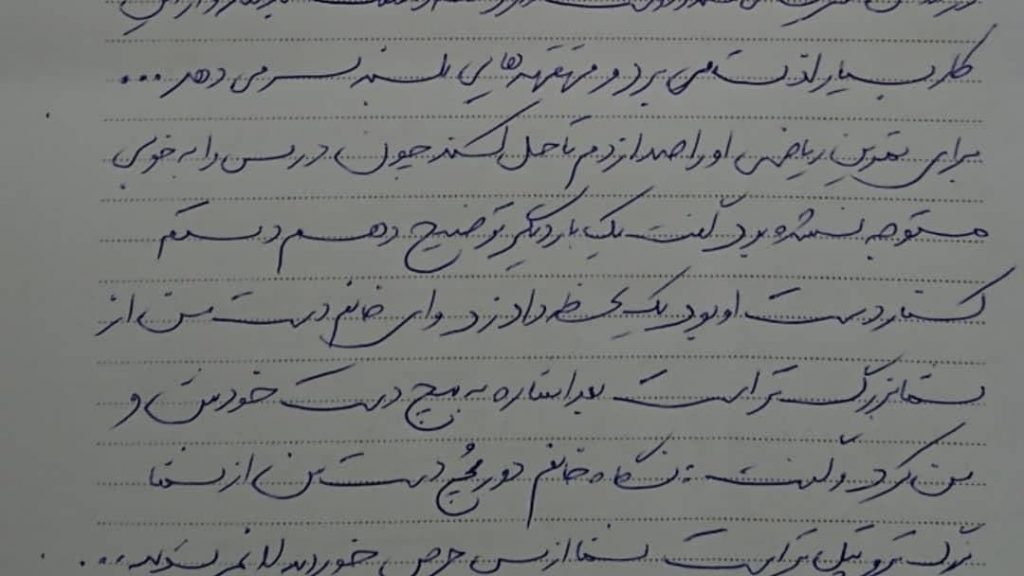 کار بسیار لذت می برد و قهقهه هایی بلند سر می دهد ...
برای تمرین ریاضی او را صدا زدم تا حل کند چون درس را به خوبی
متوجه نشده بود گفت یک بار دیگر توضیح دهم دستم
کنار دست او بود یک لحظه داد زد وای خانم دست من از
شما بزرگ تر است بعد اشاره به مچ دست خودش و
من کرد و گفت: نگاه خانم دور مچ دست من از شما
بزرگ تر و تپل تر است شما از بس حرص خوردید لاغر شدید...